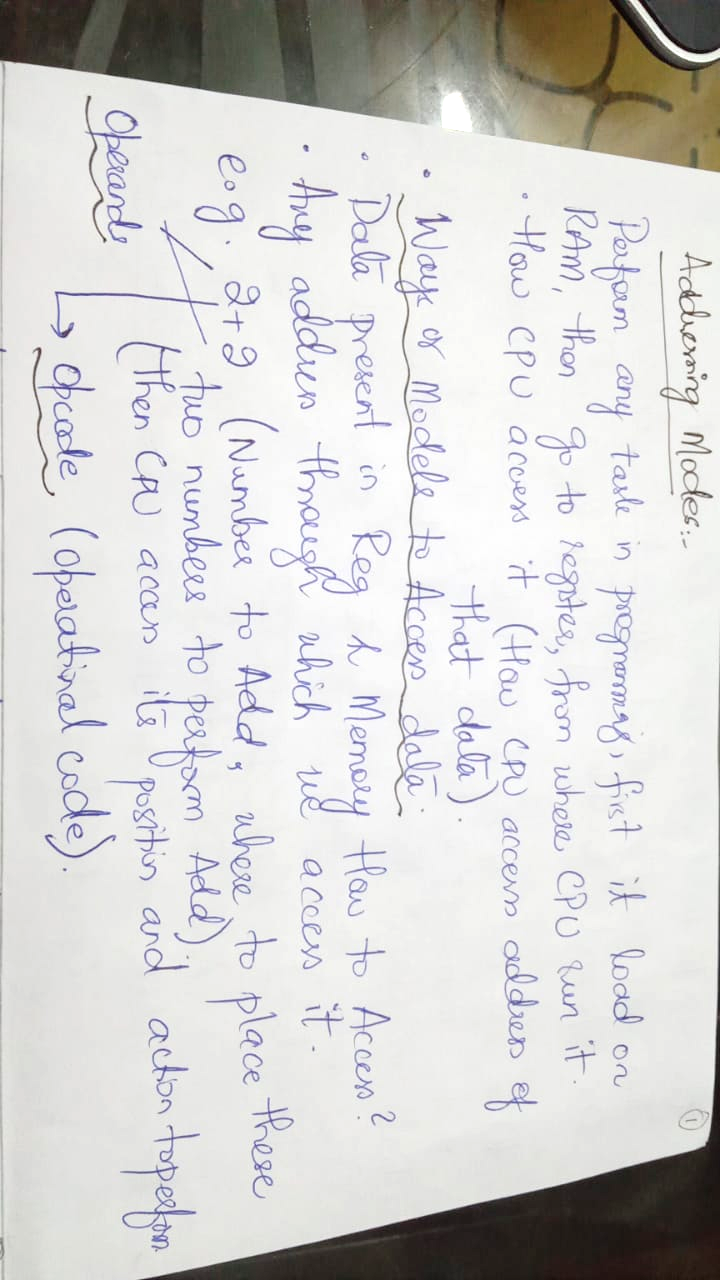 ①
Addressing Modes:-
Perform any task in programmings, first it load on
RAM, then go to register, from where CPU run it.
• How CPU access it (How CPU access address of
that data).
• Ways or Models to Access data.
• Data present in Reg & Memory How to Access?
• Any address through which we access it.
e.g. 2+2 (Number to Add, where to place these
two numbers to perform Add)
(then CPU access its position and action to perform
Operands
→ Opcode (Operatinal code).